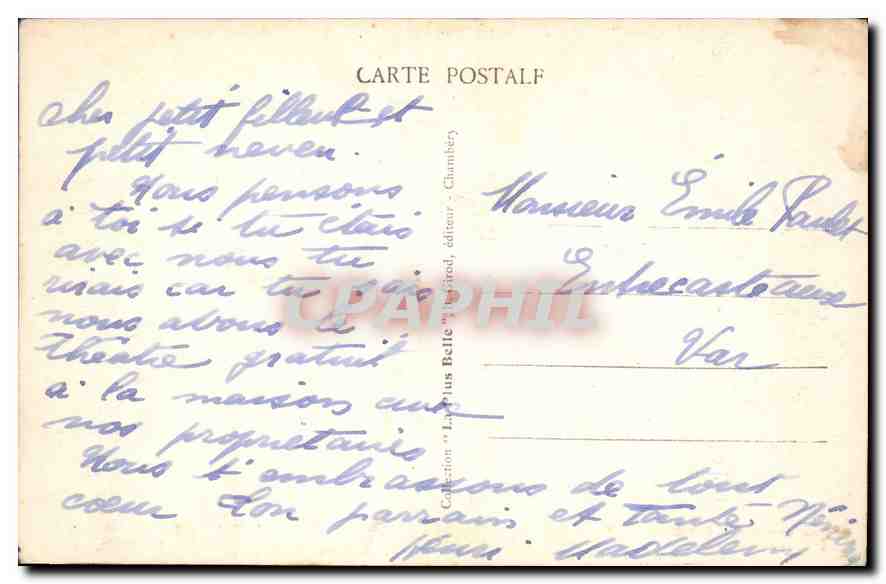 CARTE POSTALE
cher petit filleul et
petit neveu.
Nous pensons
à toi si tu étais
avec nous tu
rirais car tu sais
nous avons le
théâtre gratuit
à la maison avec
nos propriétaires
Nous t'embrassons de tout
coeur Ton parrain et tante
Henri Madeleine
Collection "La Plus Belle" Girod, éditeur - Chambéry
Monsieur Émile Paulet
Entrecasteaux
Var
CPAPHIL